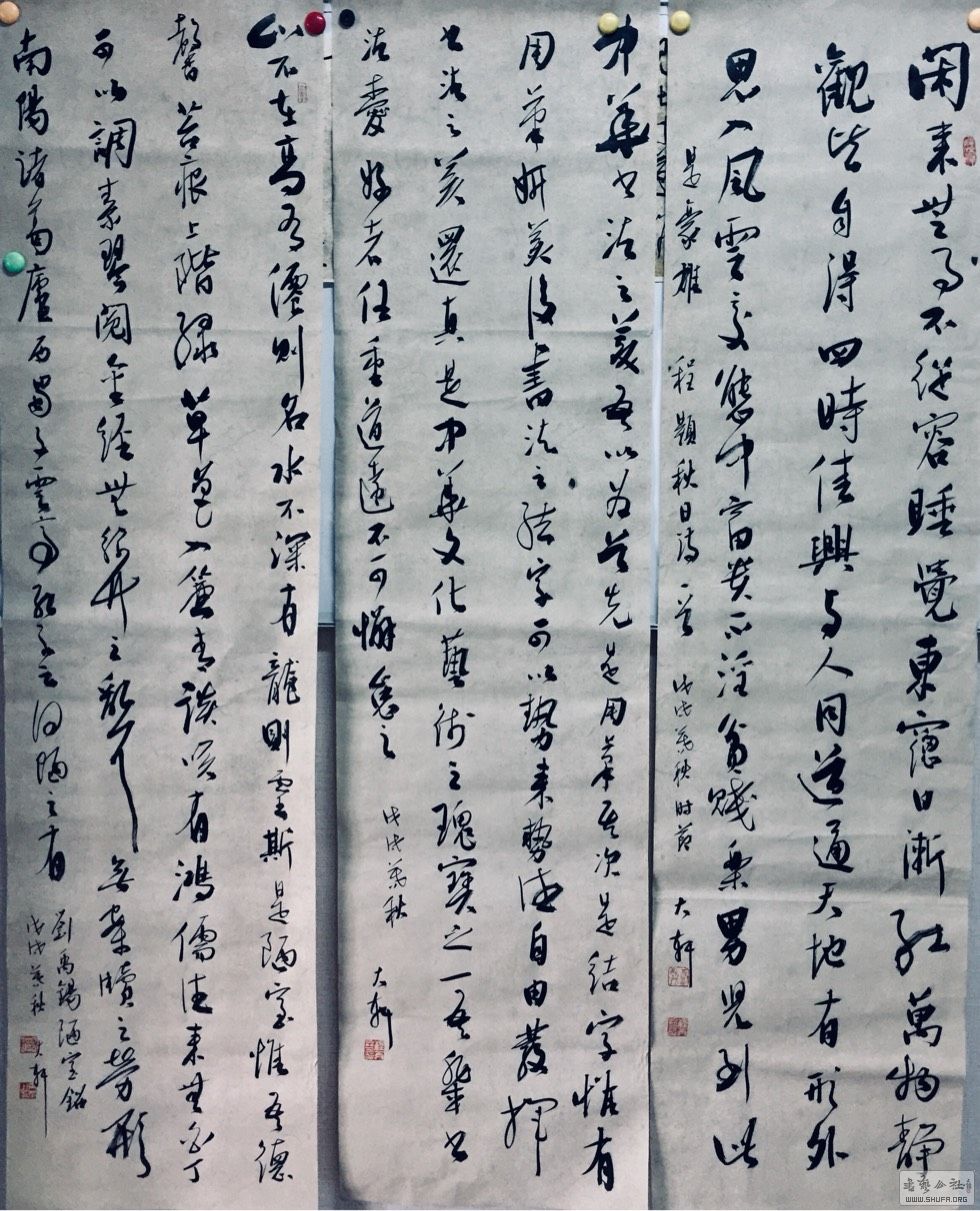 閑来無事不從容睡覺東窗日漸紅萬物静
觀皆自得四時佳興与人同道通天地有形外
思入風雲變態中富貴不淫貧賤樂男兒到此
是豪雄 程颢秋日诗一首 戊戌秋时節 大軒
中華书法之美吾以為首先是用筆其次是结字惟有
用筆妍美後書法之结字可以势来势法自由發揮
书法之美還真是中華文化藝術之瑰寶之一吾輩书
法愛好者任重道遠不可懈怠之 戊戌秋 大軒
山不在高有僊則名水不深有龍則靈斯是陋室惟吾德
馨苔痕上階緑草色入簾青談笑有鴻儒往来無白丁
可以調素琴閱金经無丝竹之亂耳無案牘之勞形
南陽諸葛廬西蜀子雲亭孔子云何陋之有
劉禹錫陋室銘
戊戌秋 大軒
WWW.SHUFA.ORG